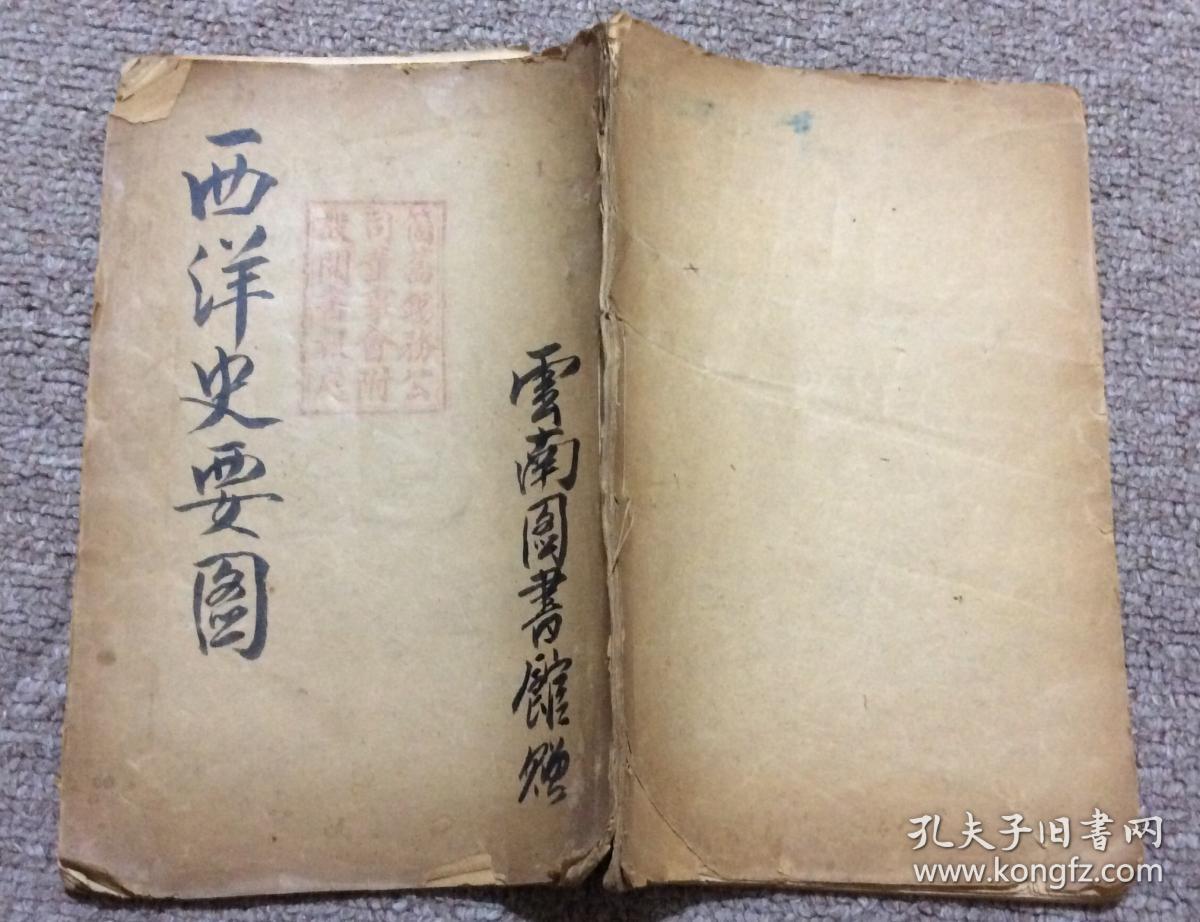 西洋史要圖
箇舊錫務公
司董事會附
設閱書報處
雲南圖書館贈
孔夫子旧书网
www.kongfz.com